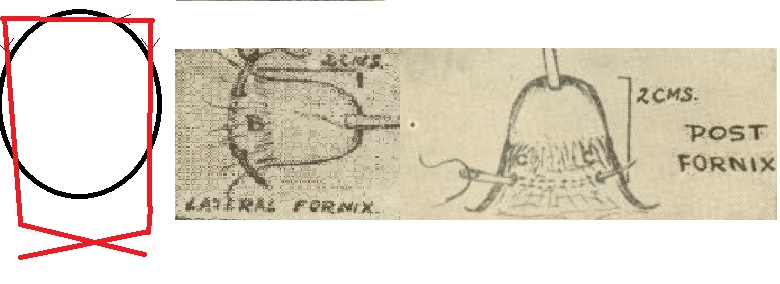 2CMS.
LATERAL FORNIX
2CMS.
POST
FORNIX